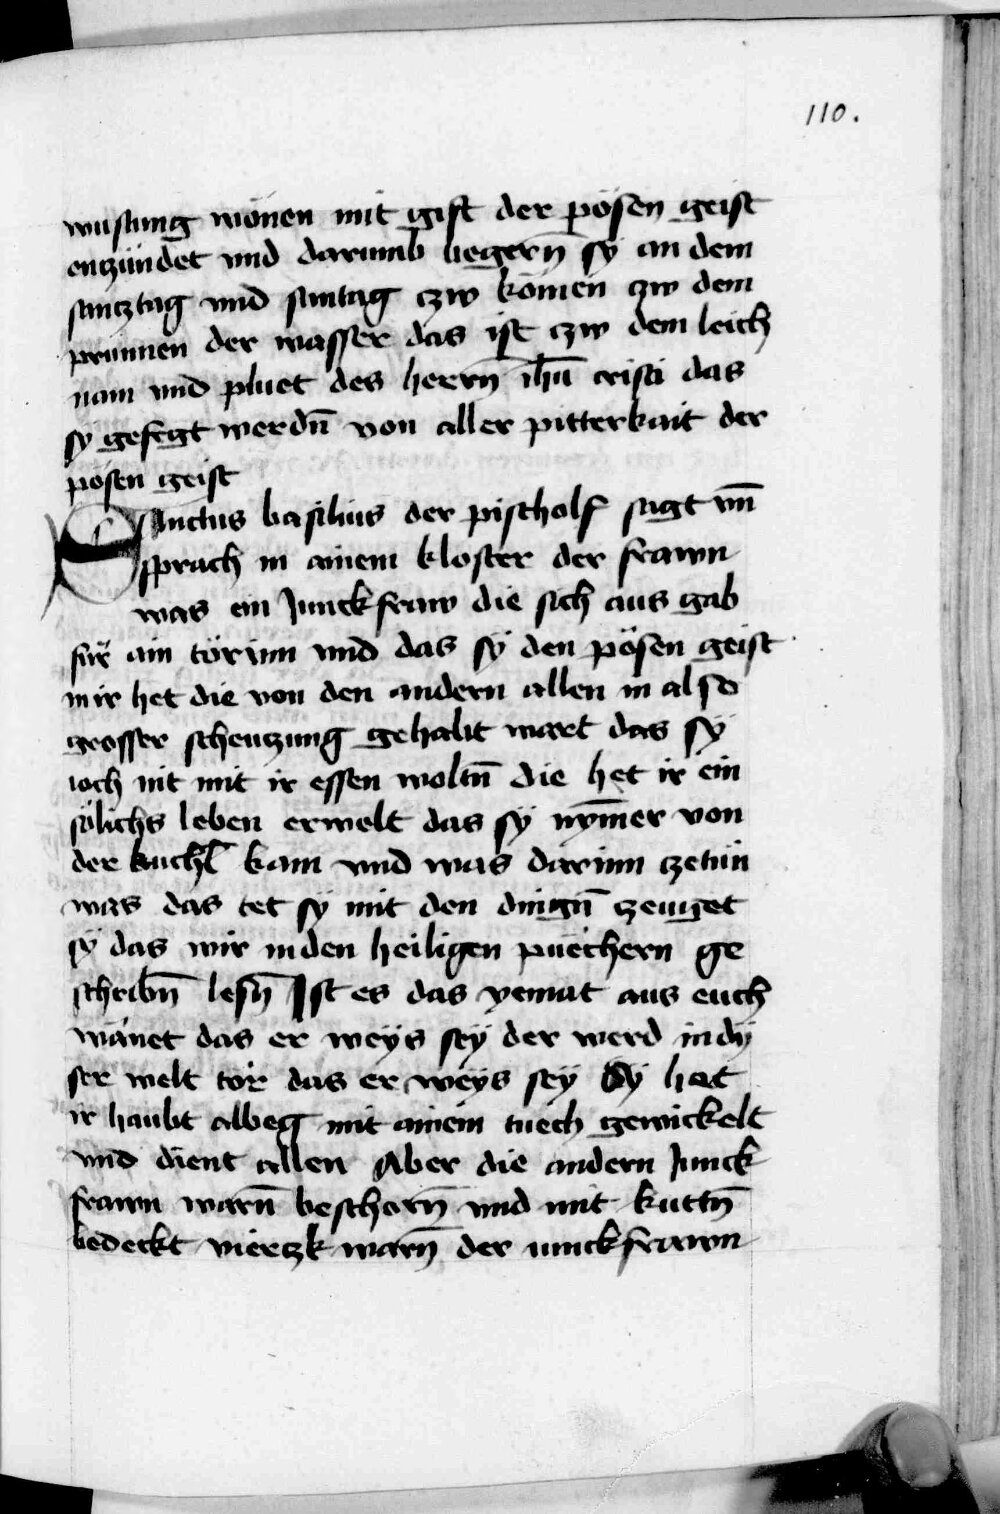 110.
wustung wönen mit gift der pösen geist
enczündet und darumb begern̄ sÿ an dem
samcztag und suntag czw kömen czw dem
prunnen der wasser das ist czw dem leich
nam und pluet des herrn̄ ihū cristi das
sy gefegt werdn̄ von aller pitterkait der
pösen geist
Sanctus basilius der pischolf sagt vn̄
sprach in ainem kloster der frawn
was ein Junckfraw die sich aus gab
für ain törinn und das sÿ den pösen geist
in ir het die von den andern allen in also
grosser scheuczung gehabt wart das sÿ
ioch nit mit ir essen woltn̄ die het ir ein
sölichs leben erwelt das sÿ nym̄er von
der kuchl kam und was darinn czetün
was das tet sÿ mit den dingn̄ czeuget
sÿ das wir in den heiligen puechern ge
schribn̄ lesn̄ Ist es das yemat aus euch
wänet das er weÿs seÿ der werd in dÿ
ser welt tör das er weÿs seÿ Sÿ het
ir haubt albeg mit ainem tuech gewickelt
und dient allen Aber die andern Junck
frawn warn̄ beschorn̄ und mit kuttn̄
bedeckt vierczk warn̄ der iunckfrawn